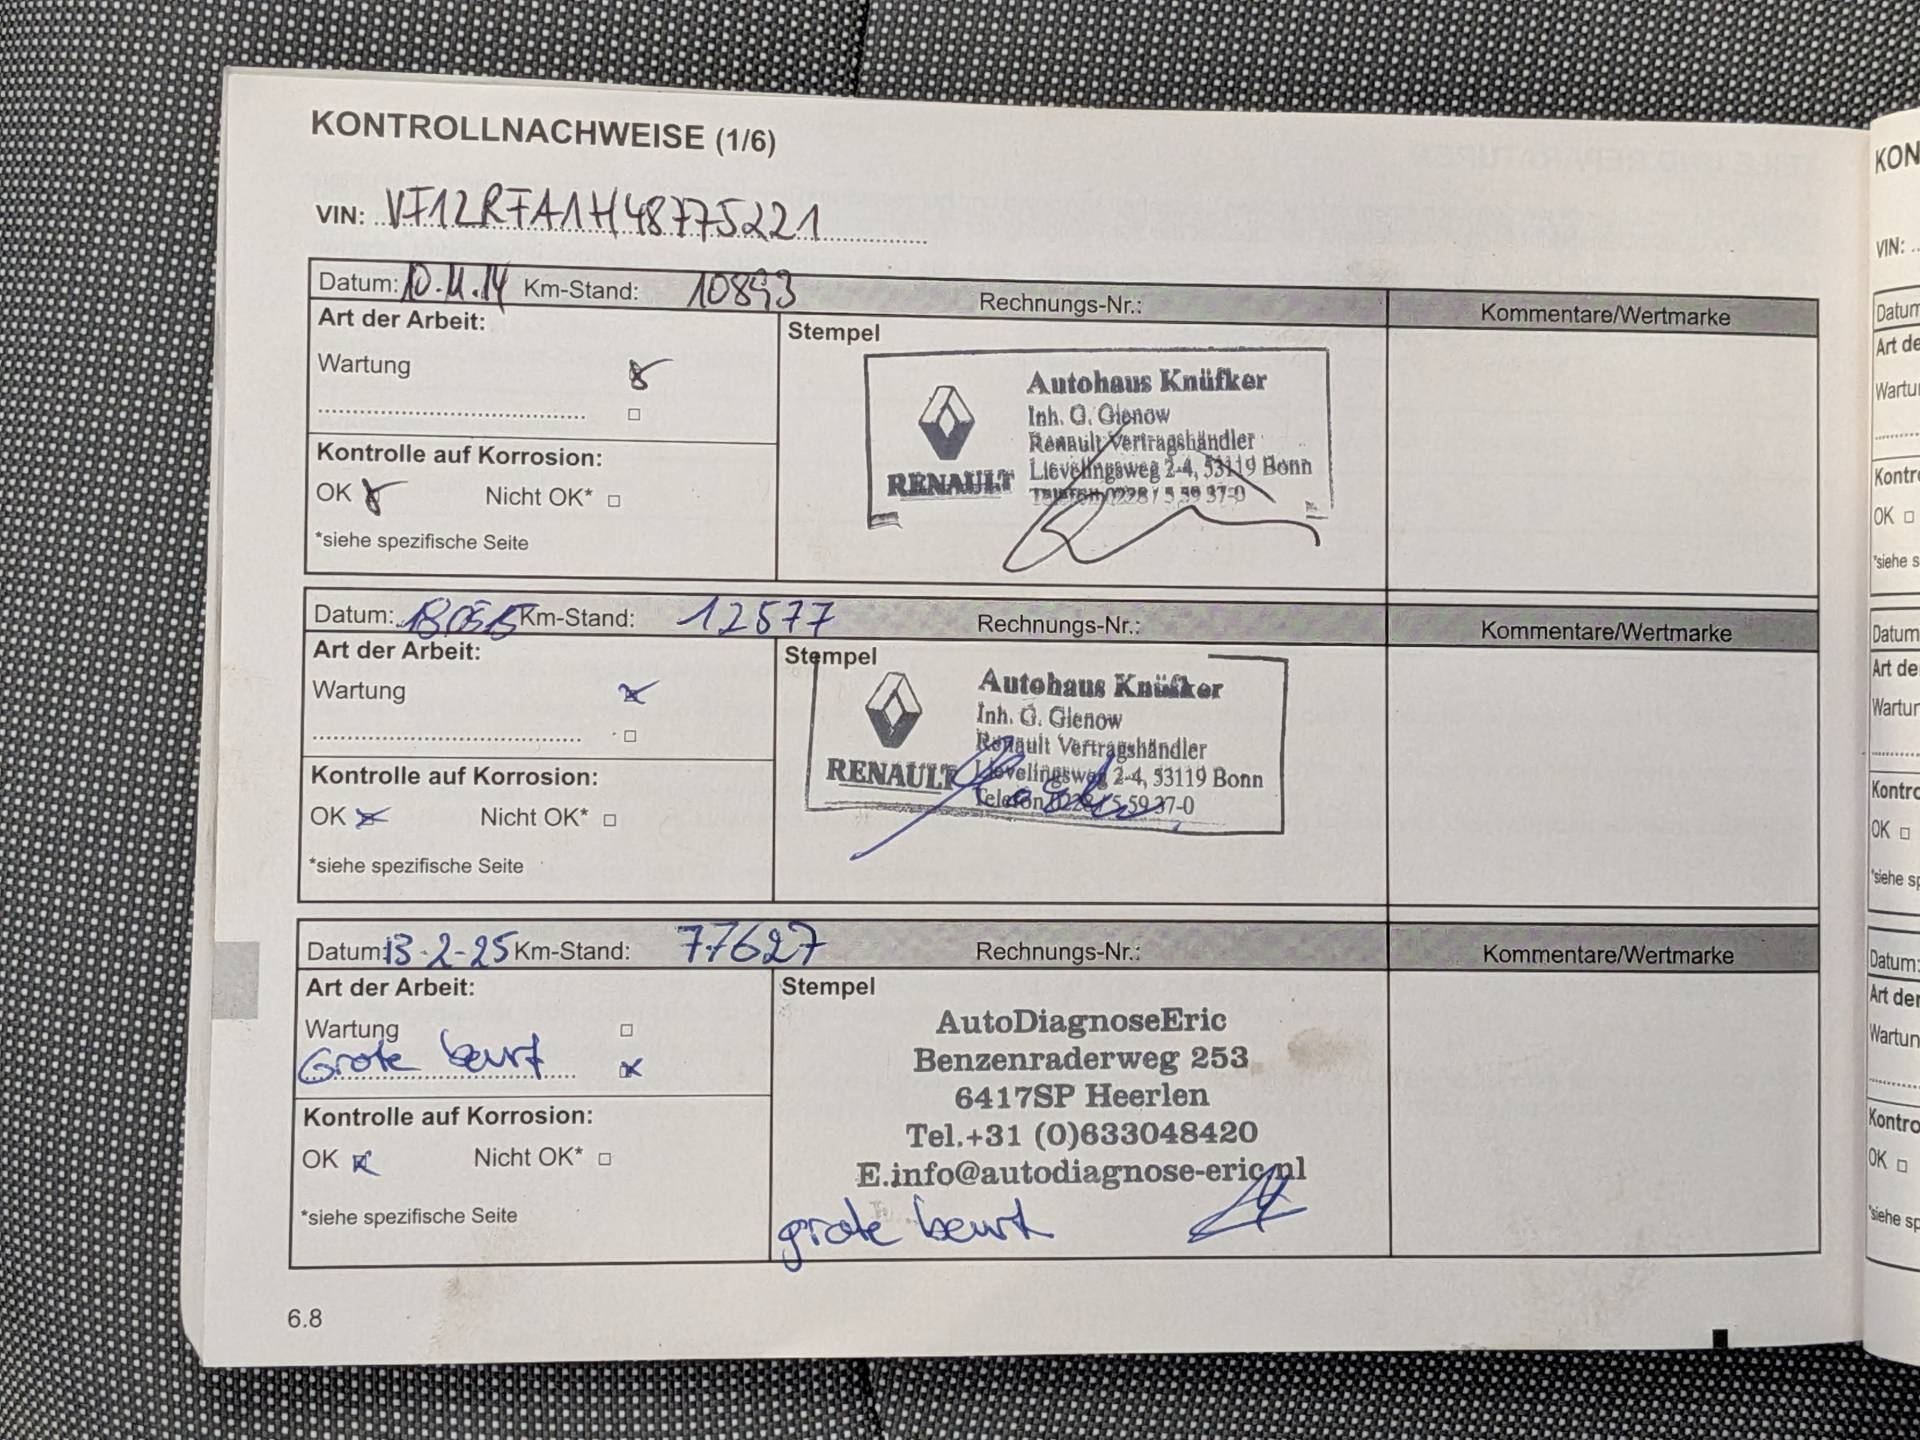 KONTROLLNACHWEISE (1/6)
VIN: VF12RFA1H48775221
Datum: 10.11.14 Km-Stand: 10893 Rechnungs-Nr.: Kommentare/Wertmarke
Art der Arbeit:
Wartung
Kontrolle auf Korrosion:
OK Nicht OK*
*siehe spezifische Seite
Stempel
RENAULT
Autohaus Knüfker
Inh. G. Gienow
Renault Vertragshändler
Lievelingsweg 2-4, 53119 Bonn
Telefon 0228 / 5 59 37-0
Datum: Km-Stand: 12577 Rechnungs-Nr.: Kommentare/Wertmarke
Art der Arbeit:
Wartung
Kontrolle auf Korrosion:
OK Nicht OK*
*siehe spezifische Seite
Stempel
RENAULT
Autohaus Knüfker
Inh. G. Gienow
Renault Vertragshändler
Lievelingsweg 2-4, 53119 Bonn
Telefon 0228 / 5 59 37-0
Datum: 13-2-25 Km-Stand: 77627 Rechnungs-Nr.: Kommentare/Wertmarke
Art der Arbeit:
Wartung
Grote beurt
Kontrolle auf Korrosion:
OK Nicht OK*
*siehe spezifische Seite
Stempel
AutoDiagnoseEric
Benzenraderweg 253
6417SP Heerlen
Tel.+31 (0)633048420
E.info@autodiagnose-eric.nl
grote beurt
6.8
KON
VIN: ..
Datum
Art de
Wartu
Kontr
OK
*siehe s
Datum
Art de
Wartur
Kontro
OK
*siehe sp
Datum:
Art der
Wartun
Kontro
OK
*siehe sp